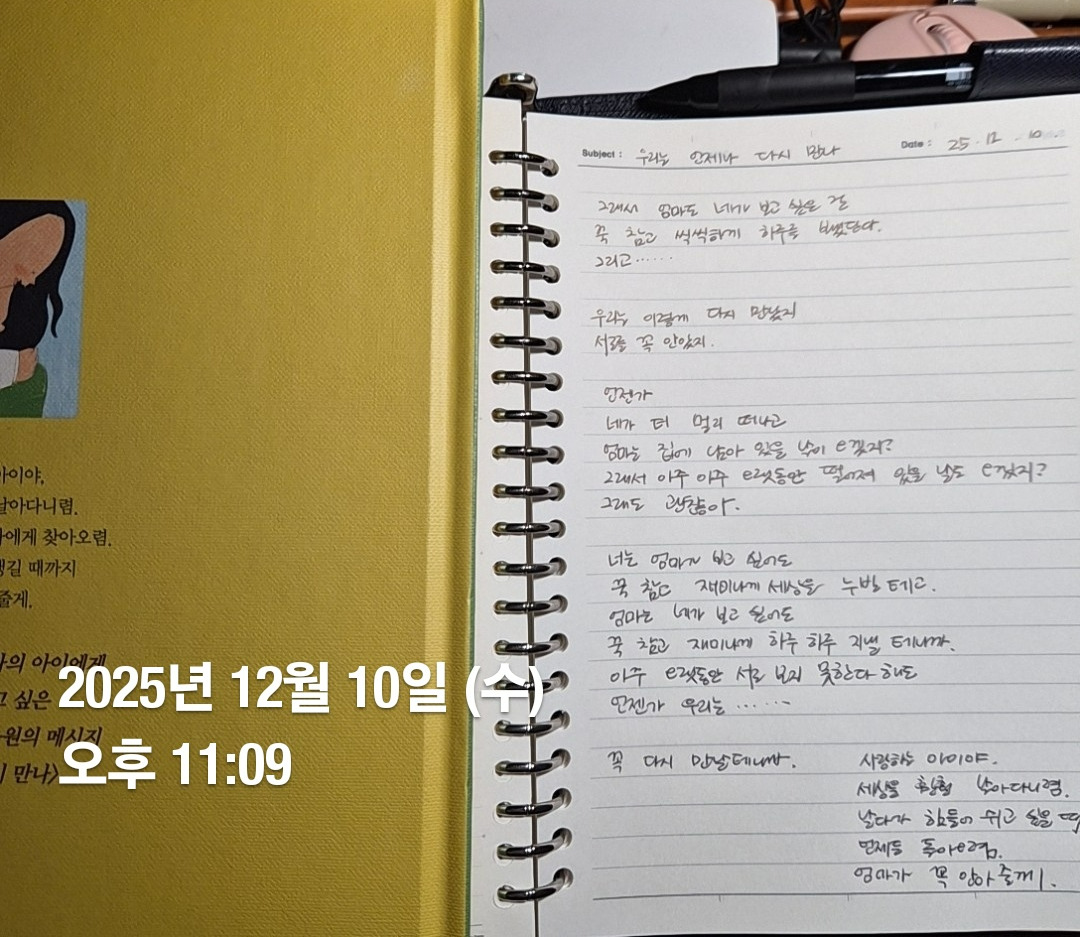 아이야,
날아다니렴.
에게 찾아오렴.
생길 때까지
줄게.
의 아이에게
고 싶은
원의 메시지
만나>
2025년 12월 10일 (수)
오후 11:09
Subject : 우리는 언제나 다시 만나 Date : 25. 12. 10
그래서 엄마도 네가 보고 싶은 걸
꾹 참고 씩씩하게 하루를 보냈단다.
그리고……
우리는 이렇게 다시 만났지
서로를 꼭 안았지.
언젠가
네가 더 멀리 떠나고
엄마는 집에 남아 있을 날이 오겠지?
그래서 아주 아주 오랫동안 떨어져 있을 날도 오겠지?
그래도 괜찮아.
너는 엄마가 보고 싶어도
꾹 참고 재미나게 세상을 누빌 테고.
엄마는 네가 보고 싶어도
꾹 참고 재미나게 하루 하루 지낼 테니까.
아주 오랫동안 서로 보지 못한다 해도
언젠가 우리는……
꼭 다시 만날테니까.
사랑하는 아이야.
세상을 훨훨 날아다니렴.
날다가 힘들어 쉬고 싶을 때
언제든 돌아오렴.
엄마가 꼭 안아 줄게.